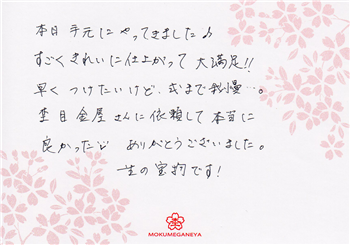 本日 手元にやってきました♪
すごくきれいに仕上がって 大満足!!
早く つけたいけど、式まで我慢…。
杢目金屋さんに依頼して本当に
良かったです ありがとうございました。
一生の宝物です!
MOKUMEGANEYA